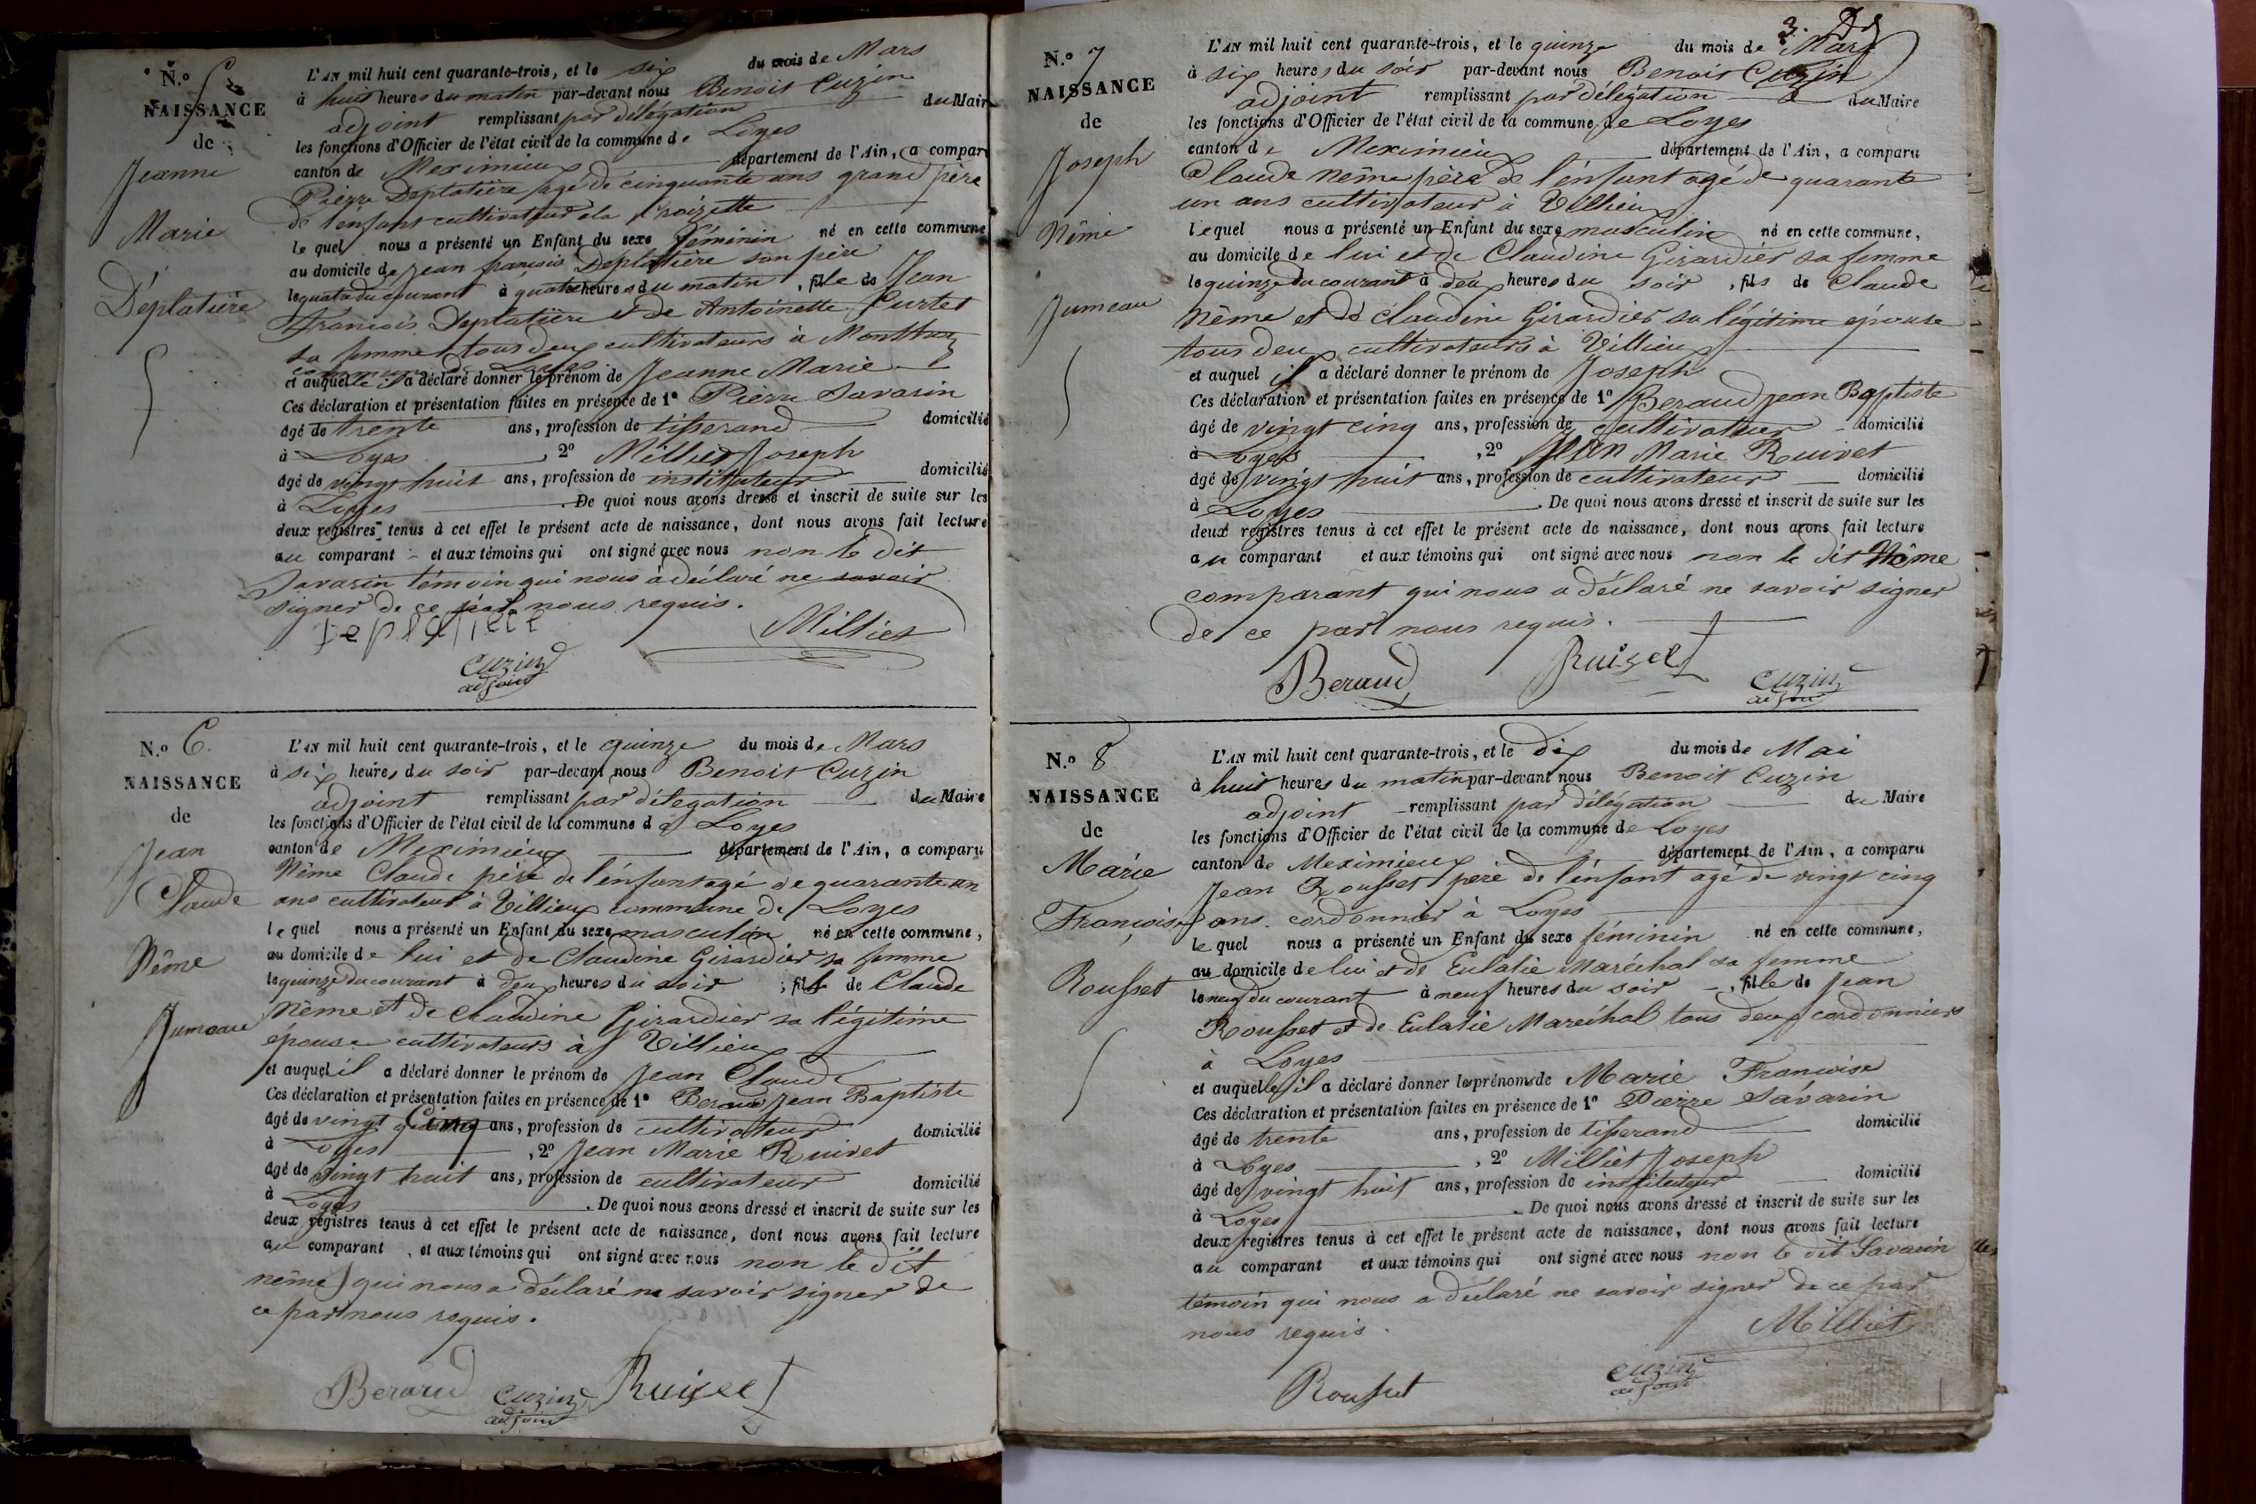 N.o 5
NAISSANCE
de
Jeanne
Marie
Déplatière
L'AN mil huit cent quarante-trois, et le six du mois de Mars
à huit heures du matin par-devant nous Benoit Cuzin
adjoint remplissant par délégation du Mair
les fonctions d'Officier de l'état civil de la commune de Loyes
canton de Meximieux département de l'Ain, a compar
Pierre Déplatière agé de cinquante ans grand père
de l'énfant cultivateur à la Croizette
le quel nous a présenté un Enfant du sexe féminin né en cette commune
au domicile de Jean françois Déplatière son père
le quatre du courant à quatre heures du matin, fille de Jean
François Déplatière et de Antoinette Curtet
sa femme tous deux cultivateurs à Monthoz
commune de Loyes
et auquelle il a déclaré donner le prénom de Jeanne Marie
Ces déclaration et présentation faites en présence de 1o Pierre Savarin
âgé de trente ans, profession de tisserand domicilié
à Loyes, 2o Milliet Joseph
âgé de vingt huit ans, profession de instituteur domicilié
à Loyes. De quoi nous avons dressé et inscrit de suite sur les
deux registres tenus à cet effet le présent acte de naissance, dont nous avons fait lecture
au comparant et aux témoins qui ont signé avec nous non le dit
Savarin témoin qui nous à déclaré ne savoir
signer de ce par nous requis.
Milliet
Cuzin
adjoint
N.o 6.
NAISSANCE
de
Jean
Claude
Nême
Jumeau
L'AN mil huit cent quarante-trois, et le quinze du mois de Mars
à six heures du soir par-devant nous Benoit Cuzin
adjoint remplissant par délégation du Maire
les fonctions d'Officier de l'état civil de la commune de Loyes
canton de Meximieux département de l'Ain, a comparu
Nême Claude père de l'énfant agé de quarante un
ans cultivateur à Villieux commune de Loyes
le quel nous a présenté un Enfant du sexe masculin né en cette commune,
au domicile de lui et de Claudine Girardier sa femme
le quinze du courant à deux heures du soir, fils de Claude
Nême et de Claudine Girardier sa légitime
épouse cultivateurs à Villieux
et auquel il a déclaré donner le prénom de Jean Claude
Ces déclaration et présentation faites en présence de 1o Beraud Jean Baptiste
âgé de vingt Cinq ans, profession de cultivateur domicilié
à Loyes, 2o Jean Marie Ruivet
âgé de vingt huit ans, profession de cultivateur domicilié
à Loyes. De quoi nous avons dressé et inscrit de suite sur les
deux registres tenus à cet effet le présent acte de naissance, dont nous avons fait lecture
au comparant, et aux témoins qui ont signé avec nous non le dit
nême qui nous a déclaré ne savoir signer de
ce par nous requis.
Beraud Cuzin Ruivet
adjoint
3.
N.o 7
NAISSANCE
de
Joseph
Nême
Jumeau
L'AN mil huit cent quarante-trois, et le quinze du mois de Mars
à six heures du soir par-devant nous Benoit Cuzin
adjoint remplissant par délégation du Maire
les fonctions d'Officier de l'état civil de la commune de Loyes
canton de Meximieux département de l'Ain, a comparu
Claude Nême père de l'énfant agé de quarante
un ans cultivateur à Villieux
lequel nous a présenté un Enfant du sexe masculin né en cette commune,
au domicile de lui et de Claudine Girardier sa femme
le quinze du courant à deux heures du soir, fils de Claude
Nême et de Claudine Girardier sa légitime épouse
tous deux cultivateurs à Villieux
et auquel il a déclaré donner le prénom de Joseph
Ces déclaration et présentation faites en présence de 1o Beraud Jean Baptiste
âgé de vingt cinq ans, profession de cultivateur domicilié
à Loyes, 2o Jean Marie Ruivet
âgé de vingt huit ans, profession de cultivateur domicilié
à Loyes. De quoi nous avons dressé et inscrit de suite sur les
deux registres tenus à cet effet le présent acte de naissance, dont nous avons fait lecture
au comparant et aux témoins qui ont signé avec nous non le dit Nême
comparant qui nous a déclaré ne savoir signer
de ce par nous requis.
Beraud Ruivet Cuzin
adjoint
N.o 8
NAISSANCE
de
Marie
Françoise
Rousset
L'AN mil huit cent quarante-trois, et le dix du mois de Mai
à huit heures du matin par-devant nous Benoit Cuzin
adjoint remplissant par délégation du Maire
les fonctions d'Officier de l'état civil de la commune de Loyes
canton de Meximieux département de l'Ain, a comparu
Jean Rousset père de l'énfant agé de vingt cinq
ans cordonnier à Loyes
le quel nous a présenté un Enfant du sexe féminin né en cette commune,
au domicile de lui et de Eulalie Maréchal sa femme
le neuf du courant à neuf heures du soir, fille de Jean
Rousset et de Eulalie Maréchal tous deux cordonniers
à Loyes
et auquelle il a déclaré donner les prénoms de Marie Francoise
Ces déclaration et présentation faites en présence de 1o Pierre Savarin
âgé de trente ans, profession de tisserand domicilié
à Loyes, 2o Milliet Joseph
âgé de vingt huit ans, profession de instituteur domicilié
à Loyes. De quoi nous avons dressé et inscrit de suite sur les
deux registres tenus à cet effet le présent acte de naissance, dont nous avons fait lecture
au comparant et aux témoins qui ont signé avec nous non le dit Savarin
témoin qui nous a déclaré ne savoir signer de ce par
nous requis.
Milliet
Rousset Cuzin
adjoint